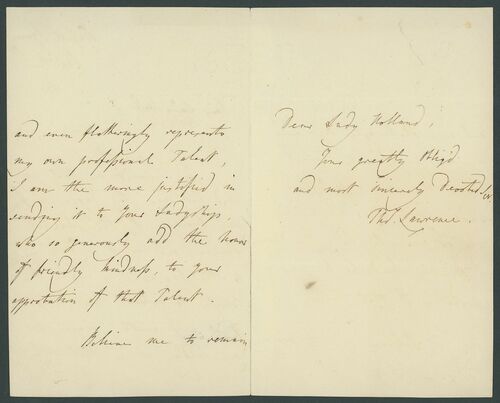 and even flatteringly represents
my own professional Talent,
I am the more justified in
sending it to Your Ladyship,
who so generously add the honor
of friendly kindness, to your
approbation of that Talent.
Believe me to remain
Dear Lady Holland,
Your greatly oblig'd
and most sincerely Devoted
Tho.s Lawrence.